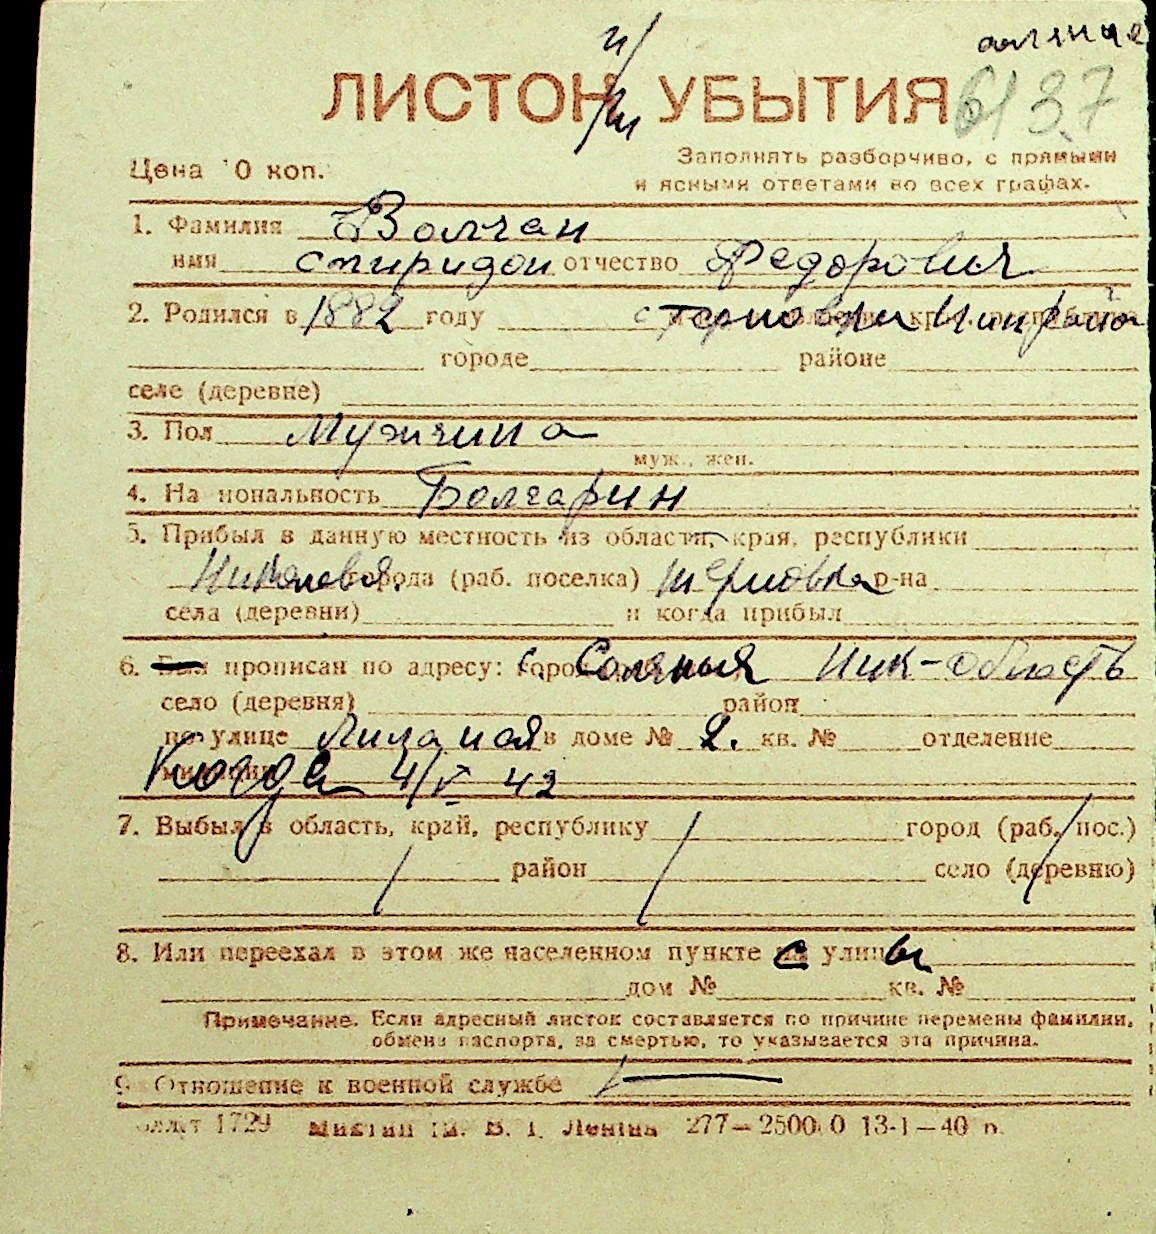 ЛИСТОК УБЫТИЯ 6137
Цена 10 коп.
Заполнять разборчиво, с прямыми
и ясными ответами во всех графах.
1. Фамилия Волчан
имя Спиридон отчество Федорович
2. Родился в 1882 году с Терновки Ник района
городе районе
селе (деревне)
3. Пол Мужчина
муж., жен.
4. На иональность Болгарин
5. Прибыл в данную местность из области, края, республики
Николаева города (раб. поселка) Терновка р-на
села (деревни) и когда прибыл
6. Был прописан по адресу: город с. Соляныя Ник-область
село (деревня) район
по улице в доме № 2. кв. № отделение
милиции Когда 4/V 42
7. Выбыл в область, край, республику город (раб. пос.)
район село (деревню)
8. Или переехал в этом же населенном пункте с улицы
дом № кв. №
Примечание. Если адресный листок составляется по причине перемены фамилии,
обмена паспорта, за смертью, то указывается эта причина.
9 Отношение к военной службе
1729 В. І. Леніна 277—2500 0 13-1—40 п.